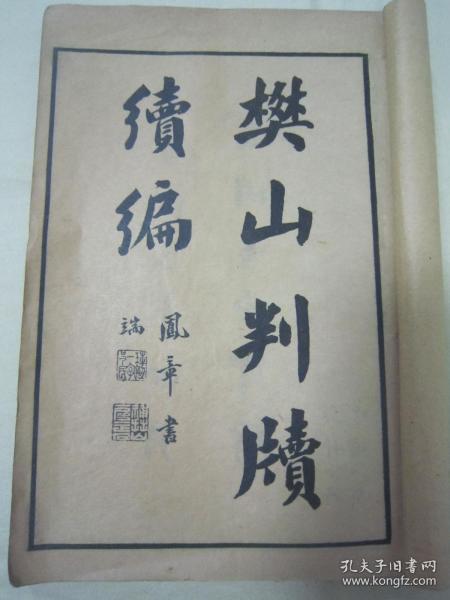 樊山判牘
續編
鳳章書
端
孔夫子旧书网
www.kongfz.com